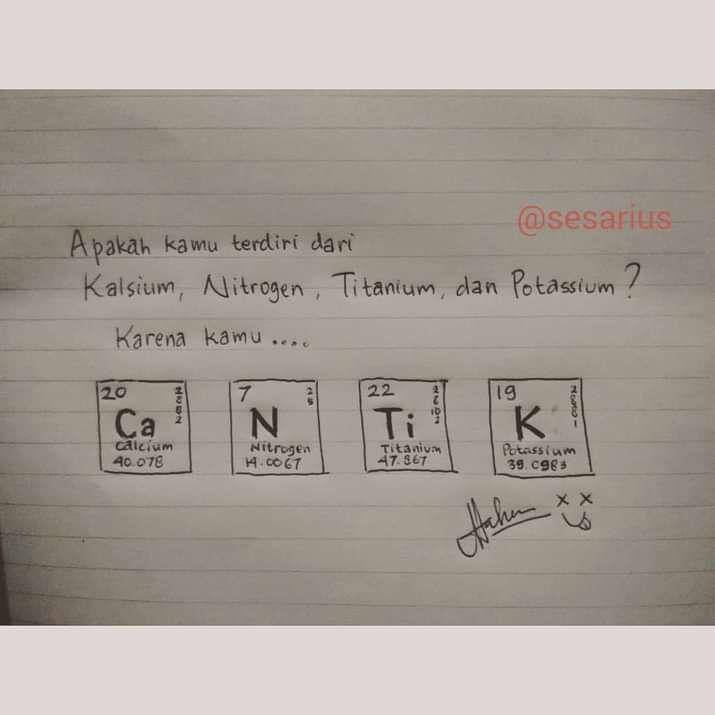 @sesarius
Apakah kamu terdiri dari
Kalsium, Nitrogen, Titanium, dan Potassium?
Karena kamu....
20 2 8 8 2 7 2 5 22 2 8 10 2 19 2 8 8 1
Ca N Ti K
Calcium Nitrogen Titanium Potassium
40.078 14.0067 47.867 39.0983